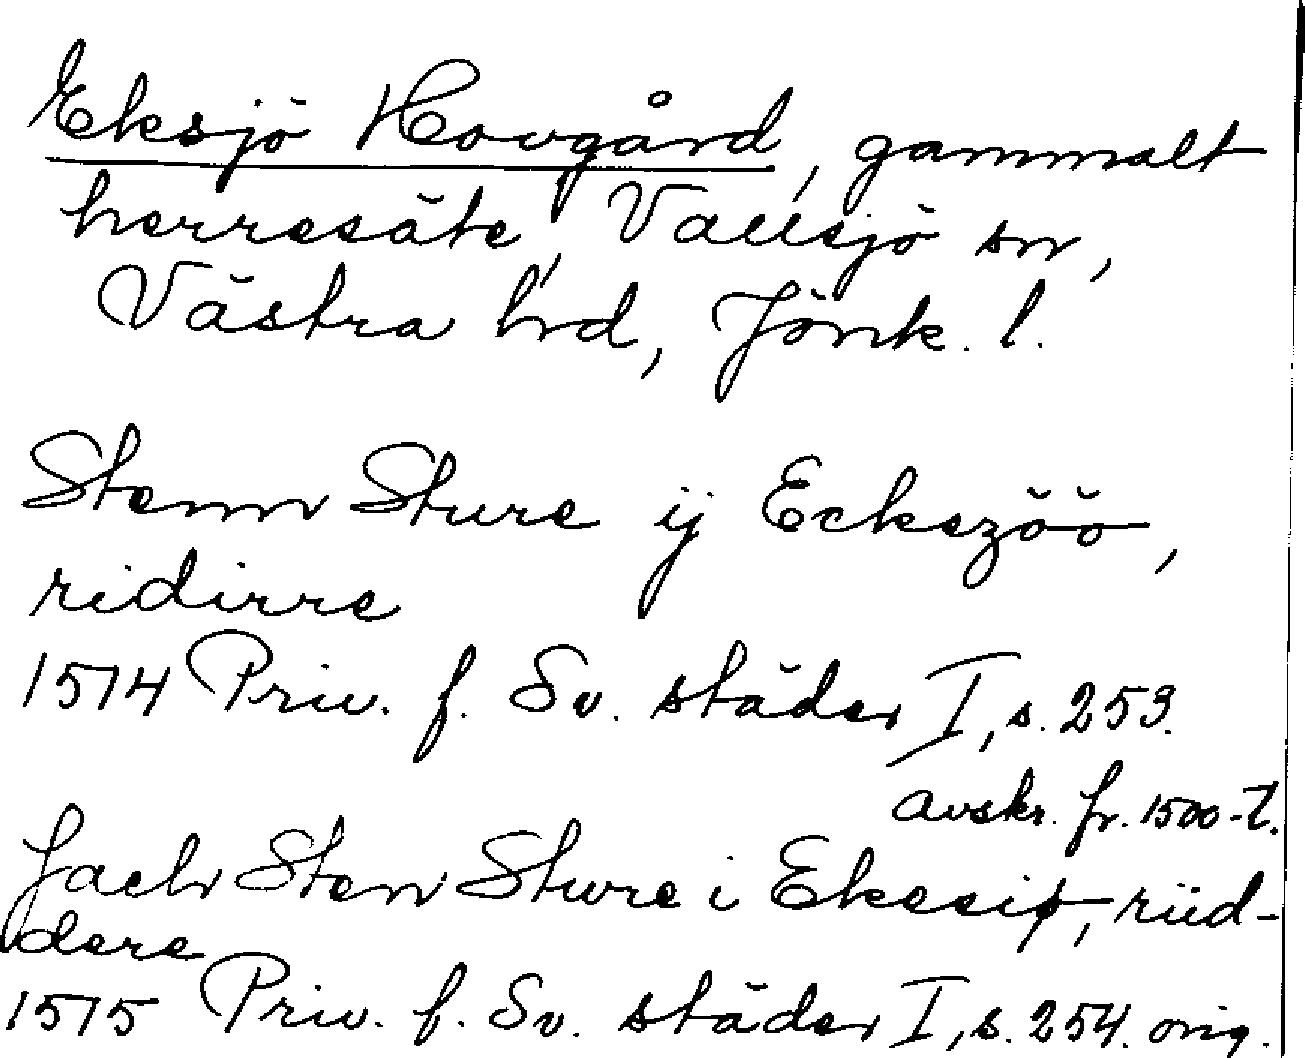 Eksjö Hovgård, gammalt
herresäte, Vallsjö sn,
Västra hrd, Jönk. l.
Stenn Sture ij Eckezöö,
ridirre
1514 Priv. f. Sv. städer I, s. 253.
avskr. fr. 1500-t.
Jach Sten Sture i Ekesiø, riid-
dere
1515 Priv. f. Sv. städer I, s. 254. orig.